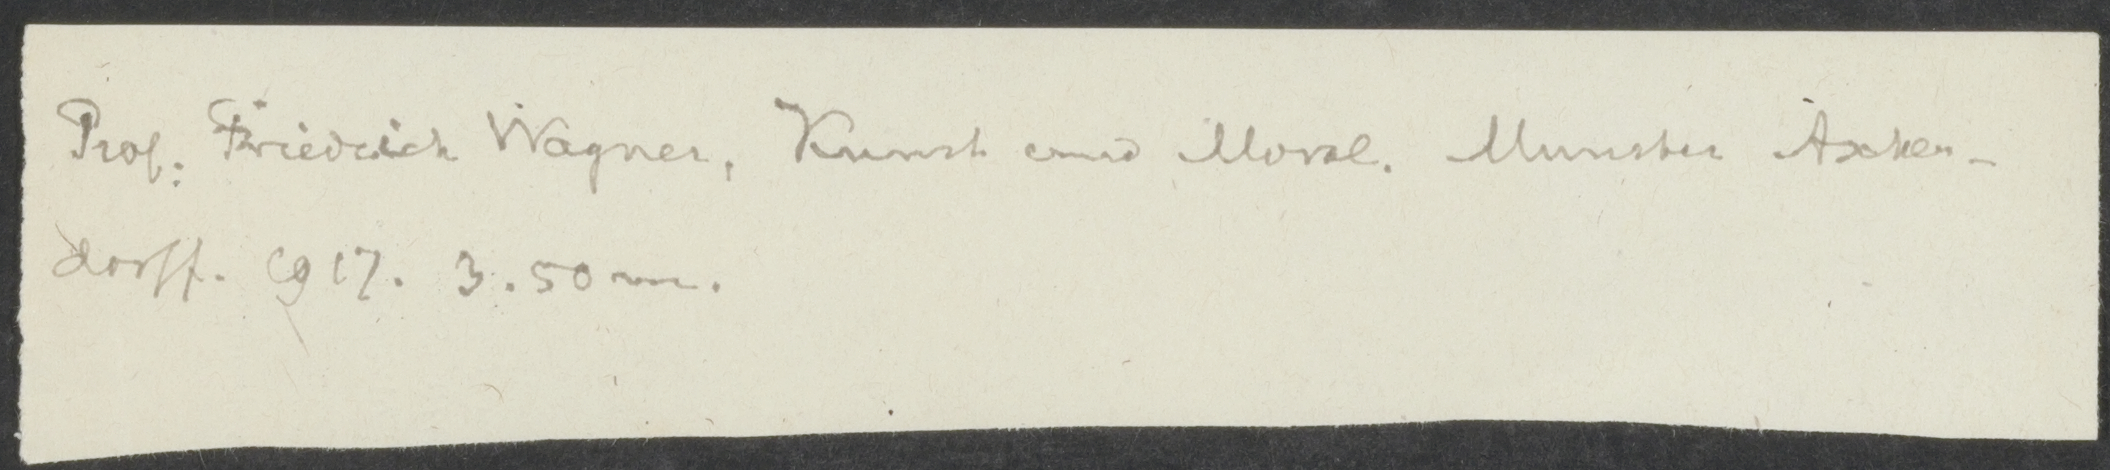 Prof. Friedrich Wagner, Kunst und Moral. Munster Aschen-
dorff. 1917. 3.50 m.